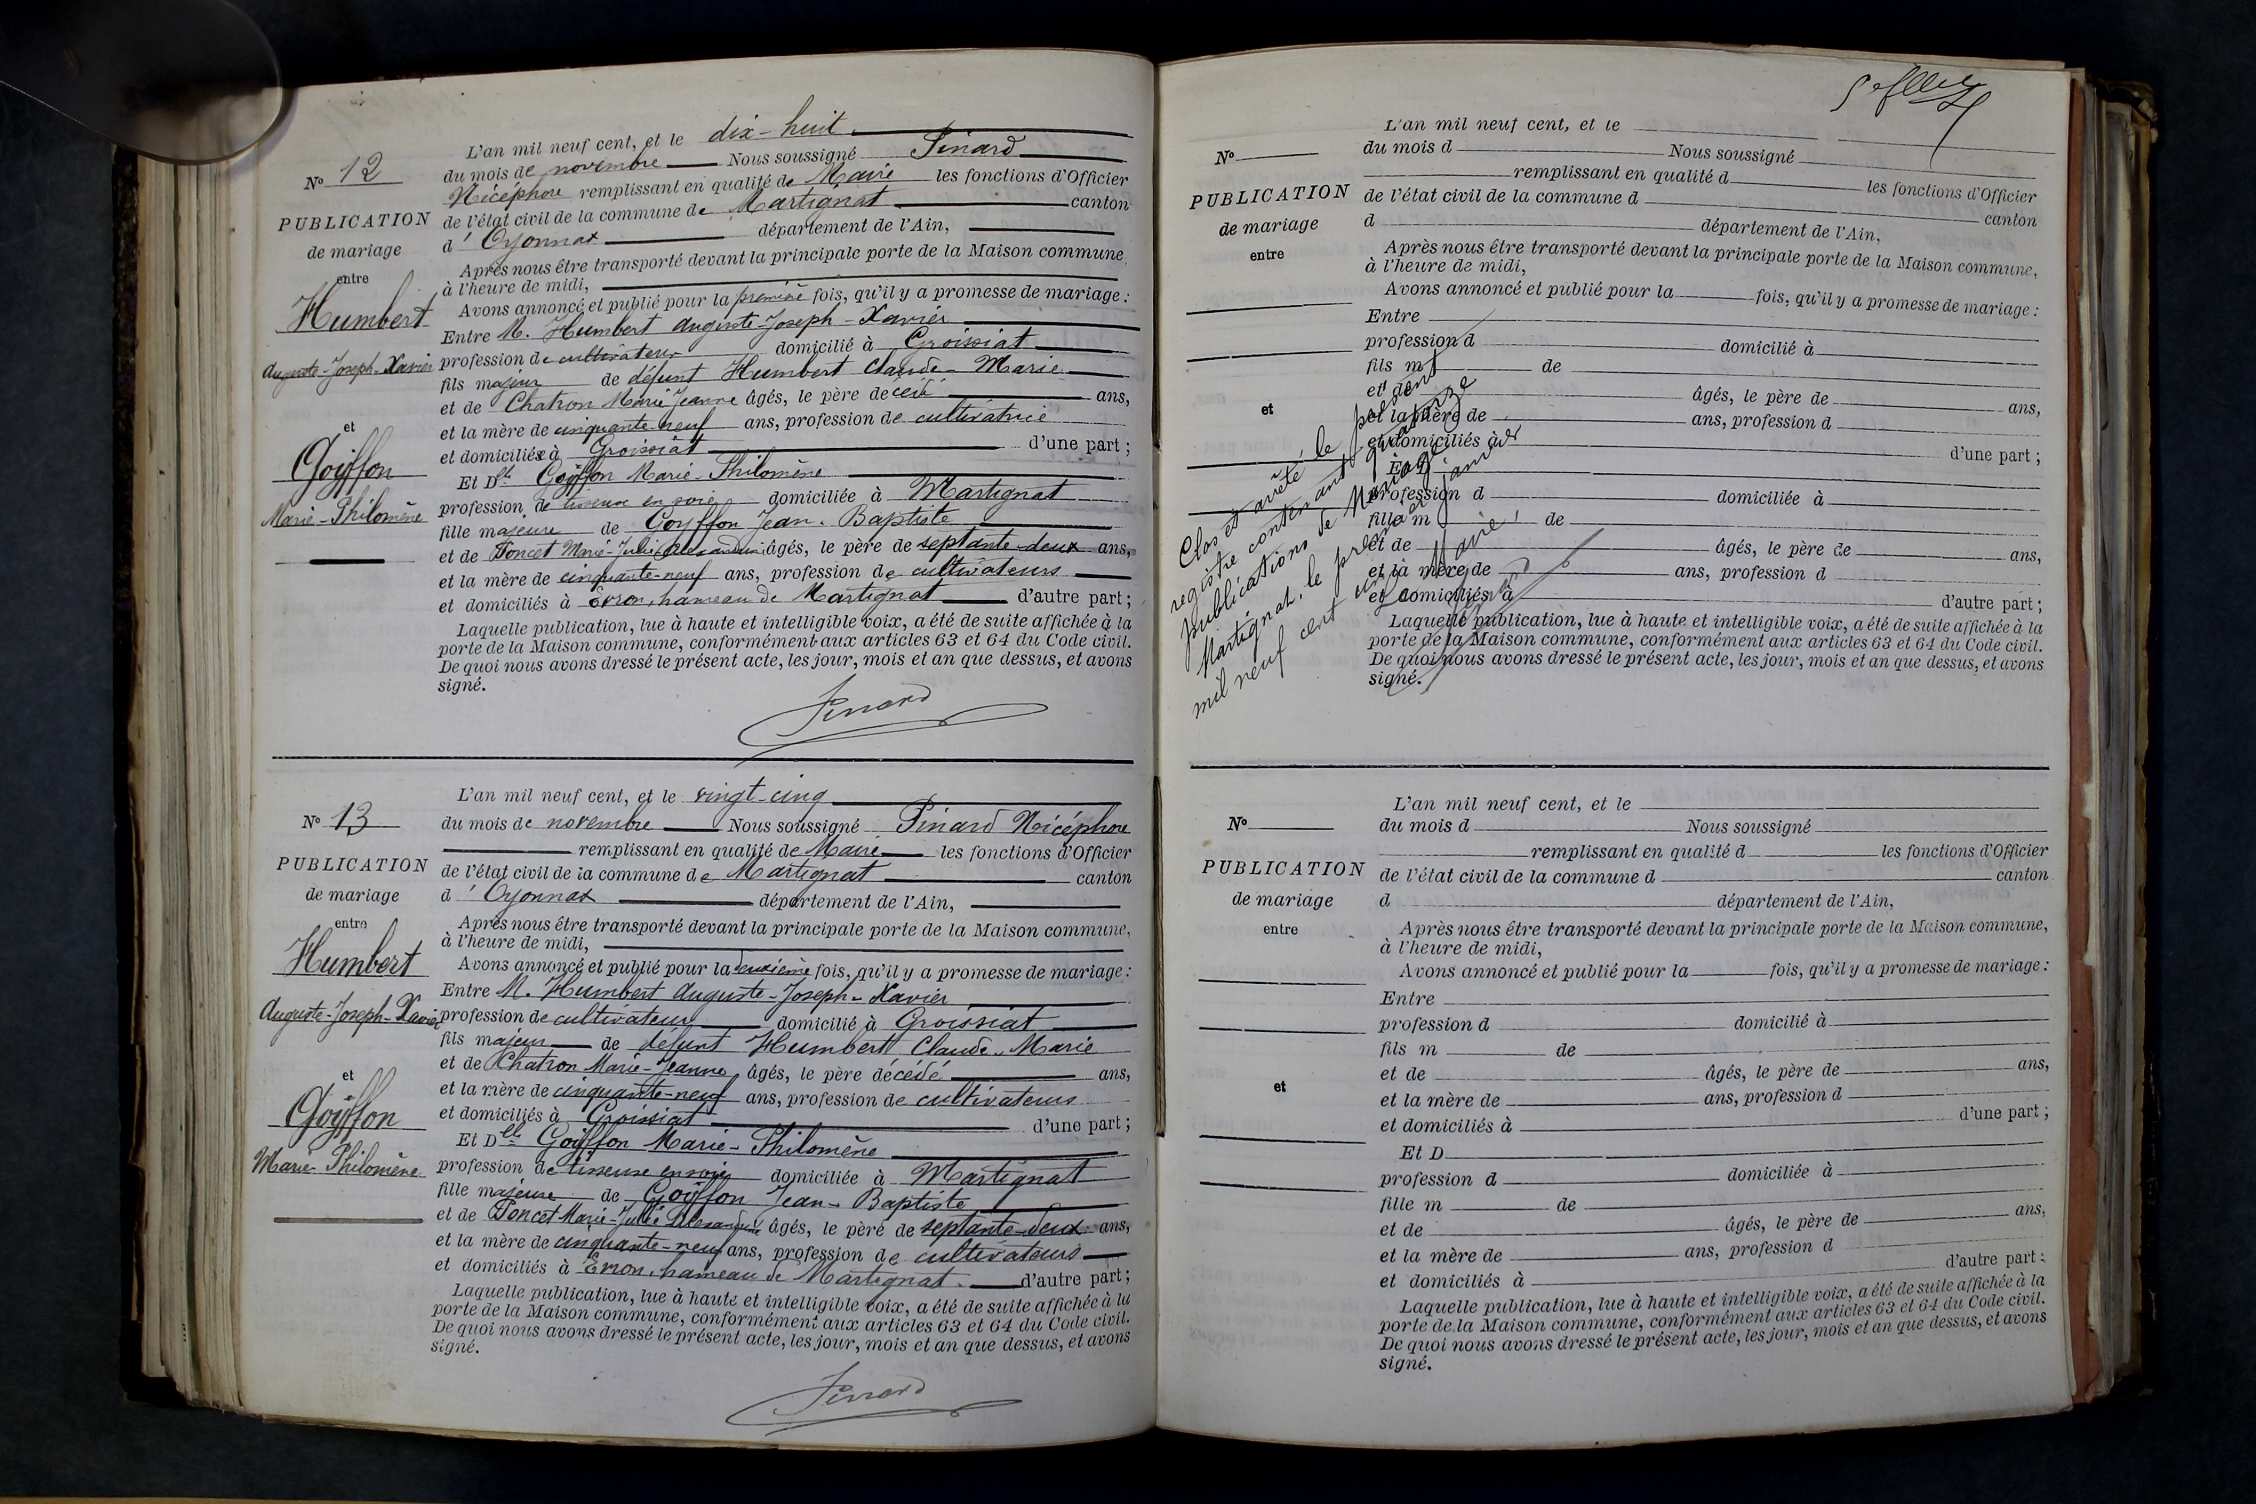 L'an mil neuf cent, et le dix-huit
No 12
du mois de novembre Nous soussigné Pinard
Nicéphore remplissant en qualité de Maire les fonctions d'Officier
PUBLICATION
de l'état civil de la commune de Martignat canton
de mariage
d'Oyonnax département de l'Ain,
entre
Après nous être transporté devant la principale porte de la Maison commune,
à l'heure de midi,
Humbert
Avons annoncé et publié pour la première fois, qu'il y a promesse de mariage :
Entre M. Humbert Auguste-Joseph-Xavier
Auguste-Joseph-Xavier
profession de cultivateur domicilié à Groissiat
fils majeur de défunt Humbert Claude-Marie
et de Chatron Marie Jeanne âgés, le père décédé ans,
et
et la mère de cinquante-neuf ans, profession de cultivatrice
Goiffon
et domiciliés à Groissiat d'une part ;
Et Dlle Goiffon Marie-Philomène
Marie-Philomène
profession de tisseuse en soie domiciliée à Martignat
fille majeure de Goyffon Jean-Baptiste
et de Poncet Marie-Julie Alexandrine âgés, le père de septante-deux ans,
et la mère de cinquante-neuf ans, profession de cultivateurs
et domiciliés à Evron, hameau de Martignat d'autre part ;
Laquelle publication, lue à haute et intelligible voix, a été de suite affichée à la
porte de la Maison commune, conformément aux articles 63 et 64 du Code civil.
De quoi nous avons dressé le présent acte, les jour, mois et an que dessus, et avons
signé.
Pinard
L'an mil neuf cent, et le vingt-cinq
No 13
du mois de novembre Nous soussigné Pinard Nicéphore
remplissant en qualité de Maire les fonctions d'Officier
PUBLICATION
de l'état civil de la commune de Martignat canton
de mariage
d'Oyonnax département de l'Ain,
entre
Après nous être transporté devant la principale porte de la Maison commune,
à l'heure de midi,
Humbert
Avons annoncé et publié pour la deuxième fois, qu'il y a promesse de mariage :
Entre M. Humbert Auguste-Joseph-Xavier
Auguste-Joseph-Xavier
profession de cultivateur domicilié à Groissiat
fils majeur de défunt Humbert Claude-Marie
et de Chatron Marie-Jeanne âgés, le père décédé ans,
et
et la mère de cinquante-neuf ans, profession de cultivateurs
Goiffon
et domiciliés à Groissiat d'une part ;
Et Dlle Goiffon Marie-Philomène
Marie-Philomène
profession de tisseuse en soie domiciliée à Martignat
fille majeure de Goiffon Jean-Baptiste
et de Poncet Marie-Julie Alexandrine âgés, le père de septante-deux ans,
et la mère de cinquante-neuf ans, profession de cultivateurs
et domiciliés à Evron, hameau de Martignat. d'autre part ;
Laquelle publication, lue à haute et intelligible voix, a été de suite affichée à la
porte de la Maison commune, conformément aux articles 63 et 64 du Code civil.
De quoi nous avons dressé le présent acte, les jour, mois et an que dessus, et avons
signé.
Pinard
L'an mil neuf cent, et le
No
du mois d Nous soussigné
remplissant en qualité d les fonctions d'Officier
PUBLICATION
de l'état civil de la commune d canton
de mariage
d département de l'Ain,
entre
Après nous être transporté devant la principale porte de la Maison commune,
à l'heure de midi,
Avons annoncé et publié pour la fois, qu'il y a promesse de mariage :
Entre
profession d domicilié à
fils m de
et de âgés, le père de ans,
et
et la mère de ans, profession d
et domiciliés à d'une part ;
Et D
profession d domiciliée à
fille m de
et de âgés, le père de ans,
et la mère de ans, profession d
et domiciliés à d'autre part ;
Laquelle publication, lue à haute et intelligible voix, a été de suite affichée à la
porte de la Maison commune, conformément aux articles 63 et 64 du Code civil.
De quoi nous avons dressé le présent acte, les jour, mois et an que dessus, et avons
signé.
Clos et arrêté le présent
registre contenant quatorze
publications de Mariage
Martignat, le premier janvier
mil neuf cent un
Le Maire,
Pinard
L'an mil neuf cent, et le
No
du mois d Nous soussigné
remplissant en qualité d les fonctions d'Officier
PUBLICATION
de l'état civil de la commune d canton
de mariage
d département de l'Ain,
entre
Après nous être transporté devant la principale porte de la Maison commune,
à l'heure de midi,
Avons annoncé et publié pour la fois, qu'il y a promesse de mariage :
Entre
profession d domicilié à
fils m de
et de âgés, le père de ans,
et
et la mère de ans, profession d
et domiciliés à d'une part ;
Et D
profession d domiciliée à
fille m de
et de âgés, le père de ans,
et la mère de ans, profession d
et domiciliés à d'autre part ;
Laquelle publication, lue à haute et intelligible voix, a été de suite affichée à la
porte de la Maison commune, conformément aux articles 63 et 64 du Code civil.
De quoi nous avons dressé le présent acte, les jour, mois et an que dessus, et avons
signé.